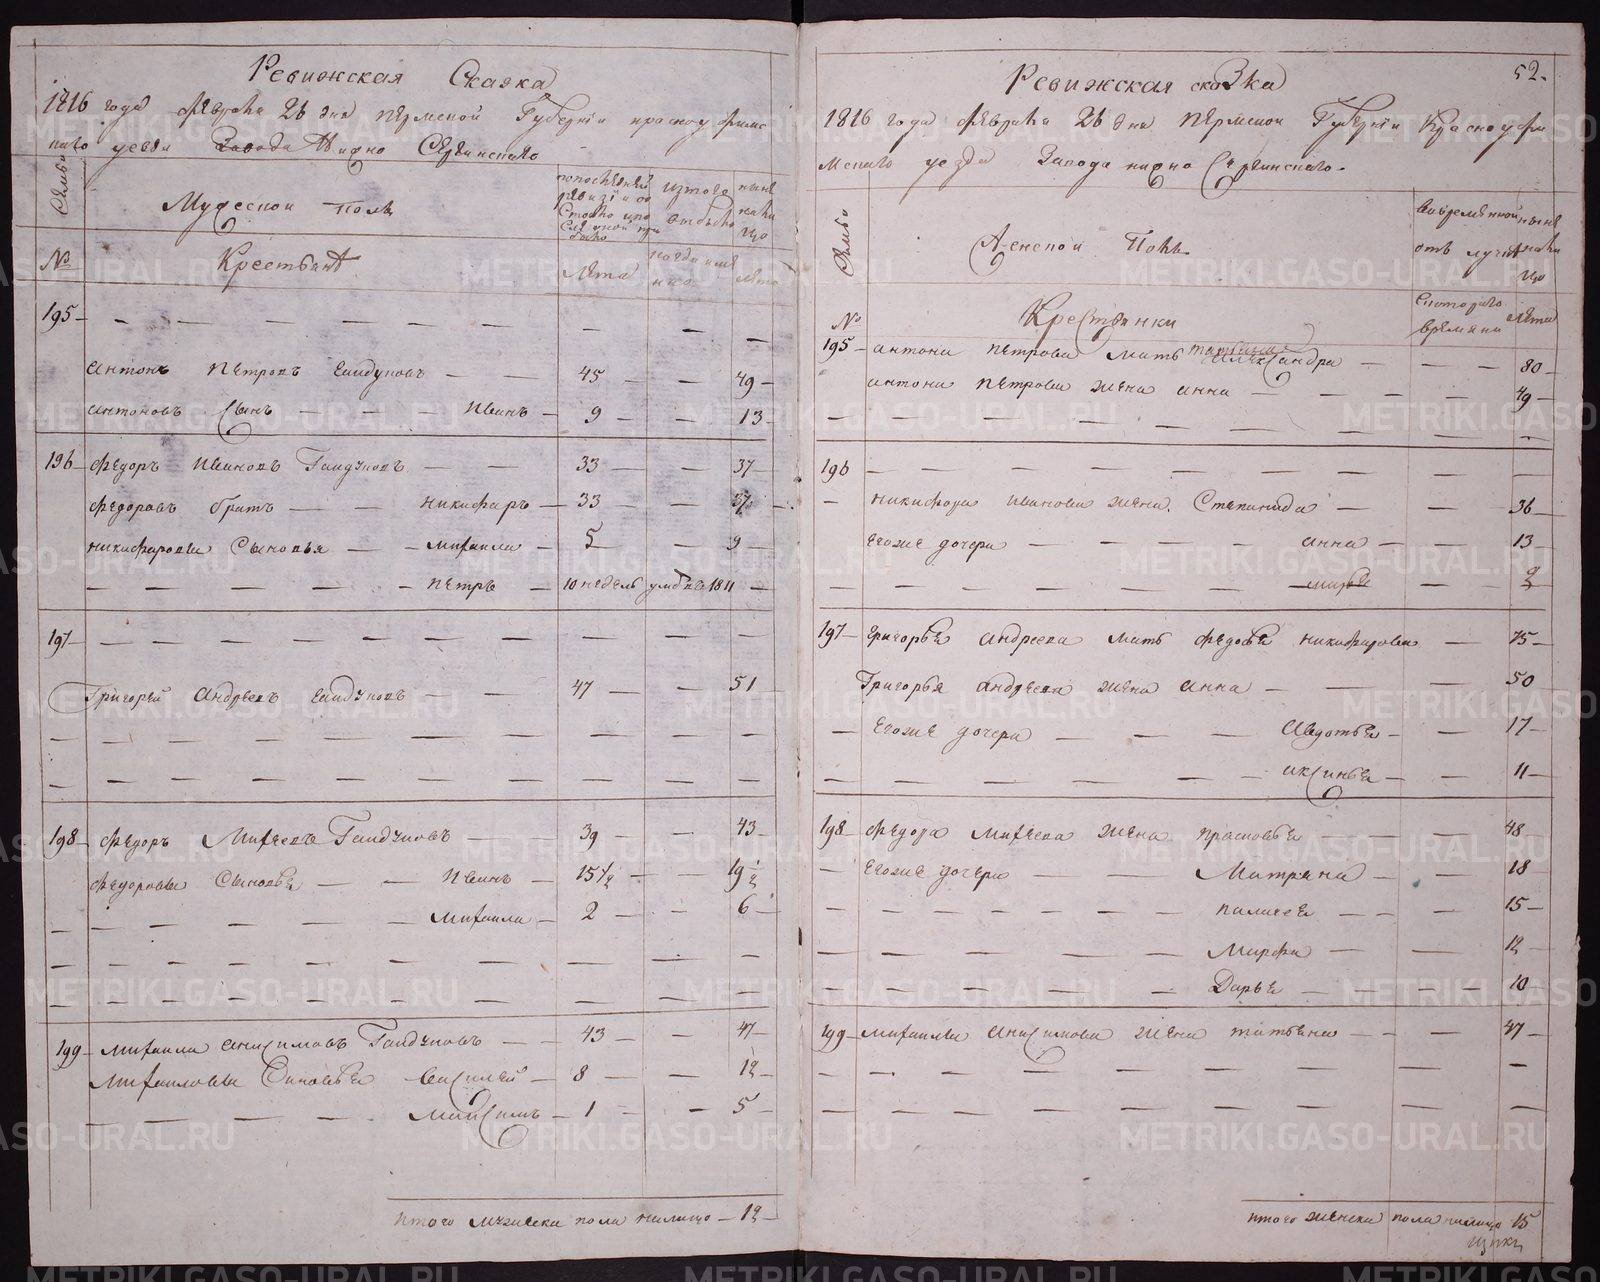 Ревижская Сказка
1816 года февраля 26 дня пермской Губернии красноуфимс
каго уезда Завода Нижно Сергинскаго
Семьи
Мужескои полъ
по последней ревизии состояло и после оной прибыло
из того выбыло
ныне налицо
№
Крестьянъ
лета
когда имянно
лета
195 —
антонъ петровъ Гайдуновъ — — 45 — — 49 —
антоновъ Сынъ — — — Иванъ — 9 — — 13 —
196 федоръ Ивановъ Гайдуновъ — — 33 — — 37 —
федоровъ братъ — — никифаръ — 33 — — 37 —
никифаровы Сыновья — — михаила — 5 — — 9 —
— — — — петръ — 10 недель умръ въ 1811 —
197 —
Григорей андреевъ Гайдуновъ — — 47 — — 51 —
198 — федоръ Михеевъ Гайдуновъ — — 39 — — 43 —
федоровы Сыновья — — Иванъ — 15 ½ — — 19 ½
— — — — михаила — 2 — — 6 —
199 — михаила анисимовъ Гайдуновъ — — 43 — — 47 —
михаиловы Сыновья василей — 8 — — 12 —
— — — — максимъ — 1 — — 5 —
итого мужеска пола налицо — 12 —
52.
Ревижская сказка
1816 года февраля 26 дня пермскои Губернии Красноуфи
мскаго уезда Завода нижно Сергинскаго.
Семьи
Женскои Полъ
во временной отлучке
ныне налицо
№
Крестьянки
с котораго времяни
лета
195 — антона петрова мать татьяна александра — — — 80 —
антона петрова жена анна — — — 49 —
196 —
— никифора иванова жена Степанида — — 36 —
Егоже дочери — — — — анна — — 13 —
— — — — марья — — 9
197 — григорья андреева мать федосья никифарова — 75 —
Григорья андреева жена анна — — — 50
— Егоже дочери — — — Авдотья — — 17 —
— — — — аксинья — — 11 —
198 — федора михеева жена прасковья — — — 48
— Егоже дочери — — Матрена — — 18
— — — — палагея — — 15 —
— — — — Марфа — — 12
— — — — Дарья — — 10
199 — михаилы анисимова жена татьяна — — — 47 —
итого женска пола налицо 15